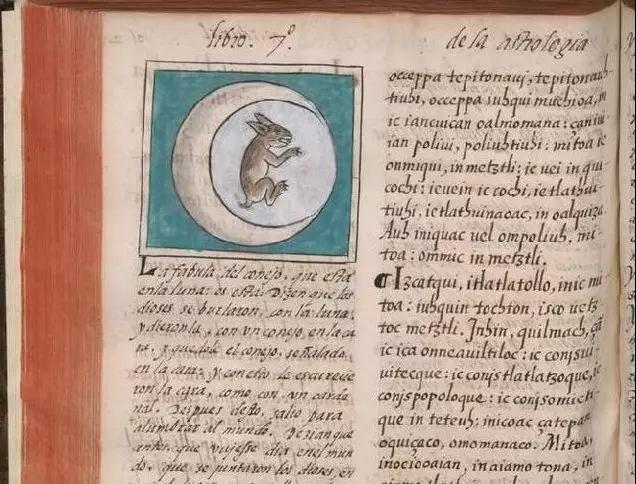 libro. 7º.
de la astrologia
La fabula, del conejo, que esta
en la luna: es esta: Dizen que los
dioses se burlaron, con la luna,
y dieronla, con vn conejo, en la ca
ra. y quedole el conejo, señalado,
en la cara: y con esto le escurecie
ron la cara, como con, vn carde
nal. Despues desto, salio para
alumbrar al mundo. Dezian que
antes que vujesse dia en el mun
do, que se juntaron los dioses, en
occeppa tepitonaui, tepitonauh
tiuh, occeppa iuhqui muchioa, in
ic iancuican oalmomana: çan iuh
ian poliui, poliuhtiuh: mitoa ie
onmiqui, in metztli: ie uei in qui
cochi: ie uein ic cochi, ie tlathui
tiuh, ie tlathuinaoac, in oalquiça.
Auh iniquac uel ompoliuh, mi
toa: ommic in metztli.
Izcatqui, itlatlatollo, inic mi
toa: iuhquin tochton, isco uetz
toc metztli. Inhin, quilmach, çã
ic ica onneauiltiloc: ic conjsui
uitecque: ic conjstlatlatzoque, ic
conjspopoloque: ic conjsomicti
que in teteuh: inicoac çatepan
oquiçaco, omomanaco. Mitoa,
in oc iooaian, in aiamo tona, in